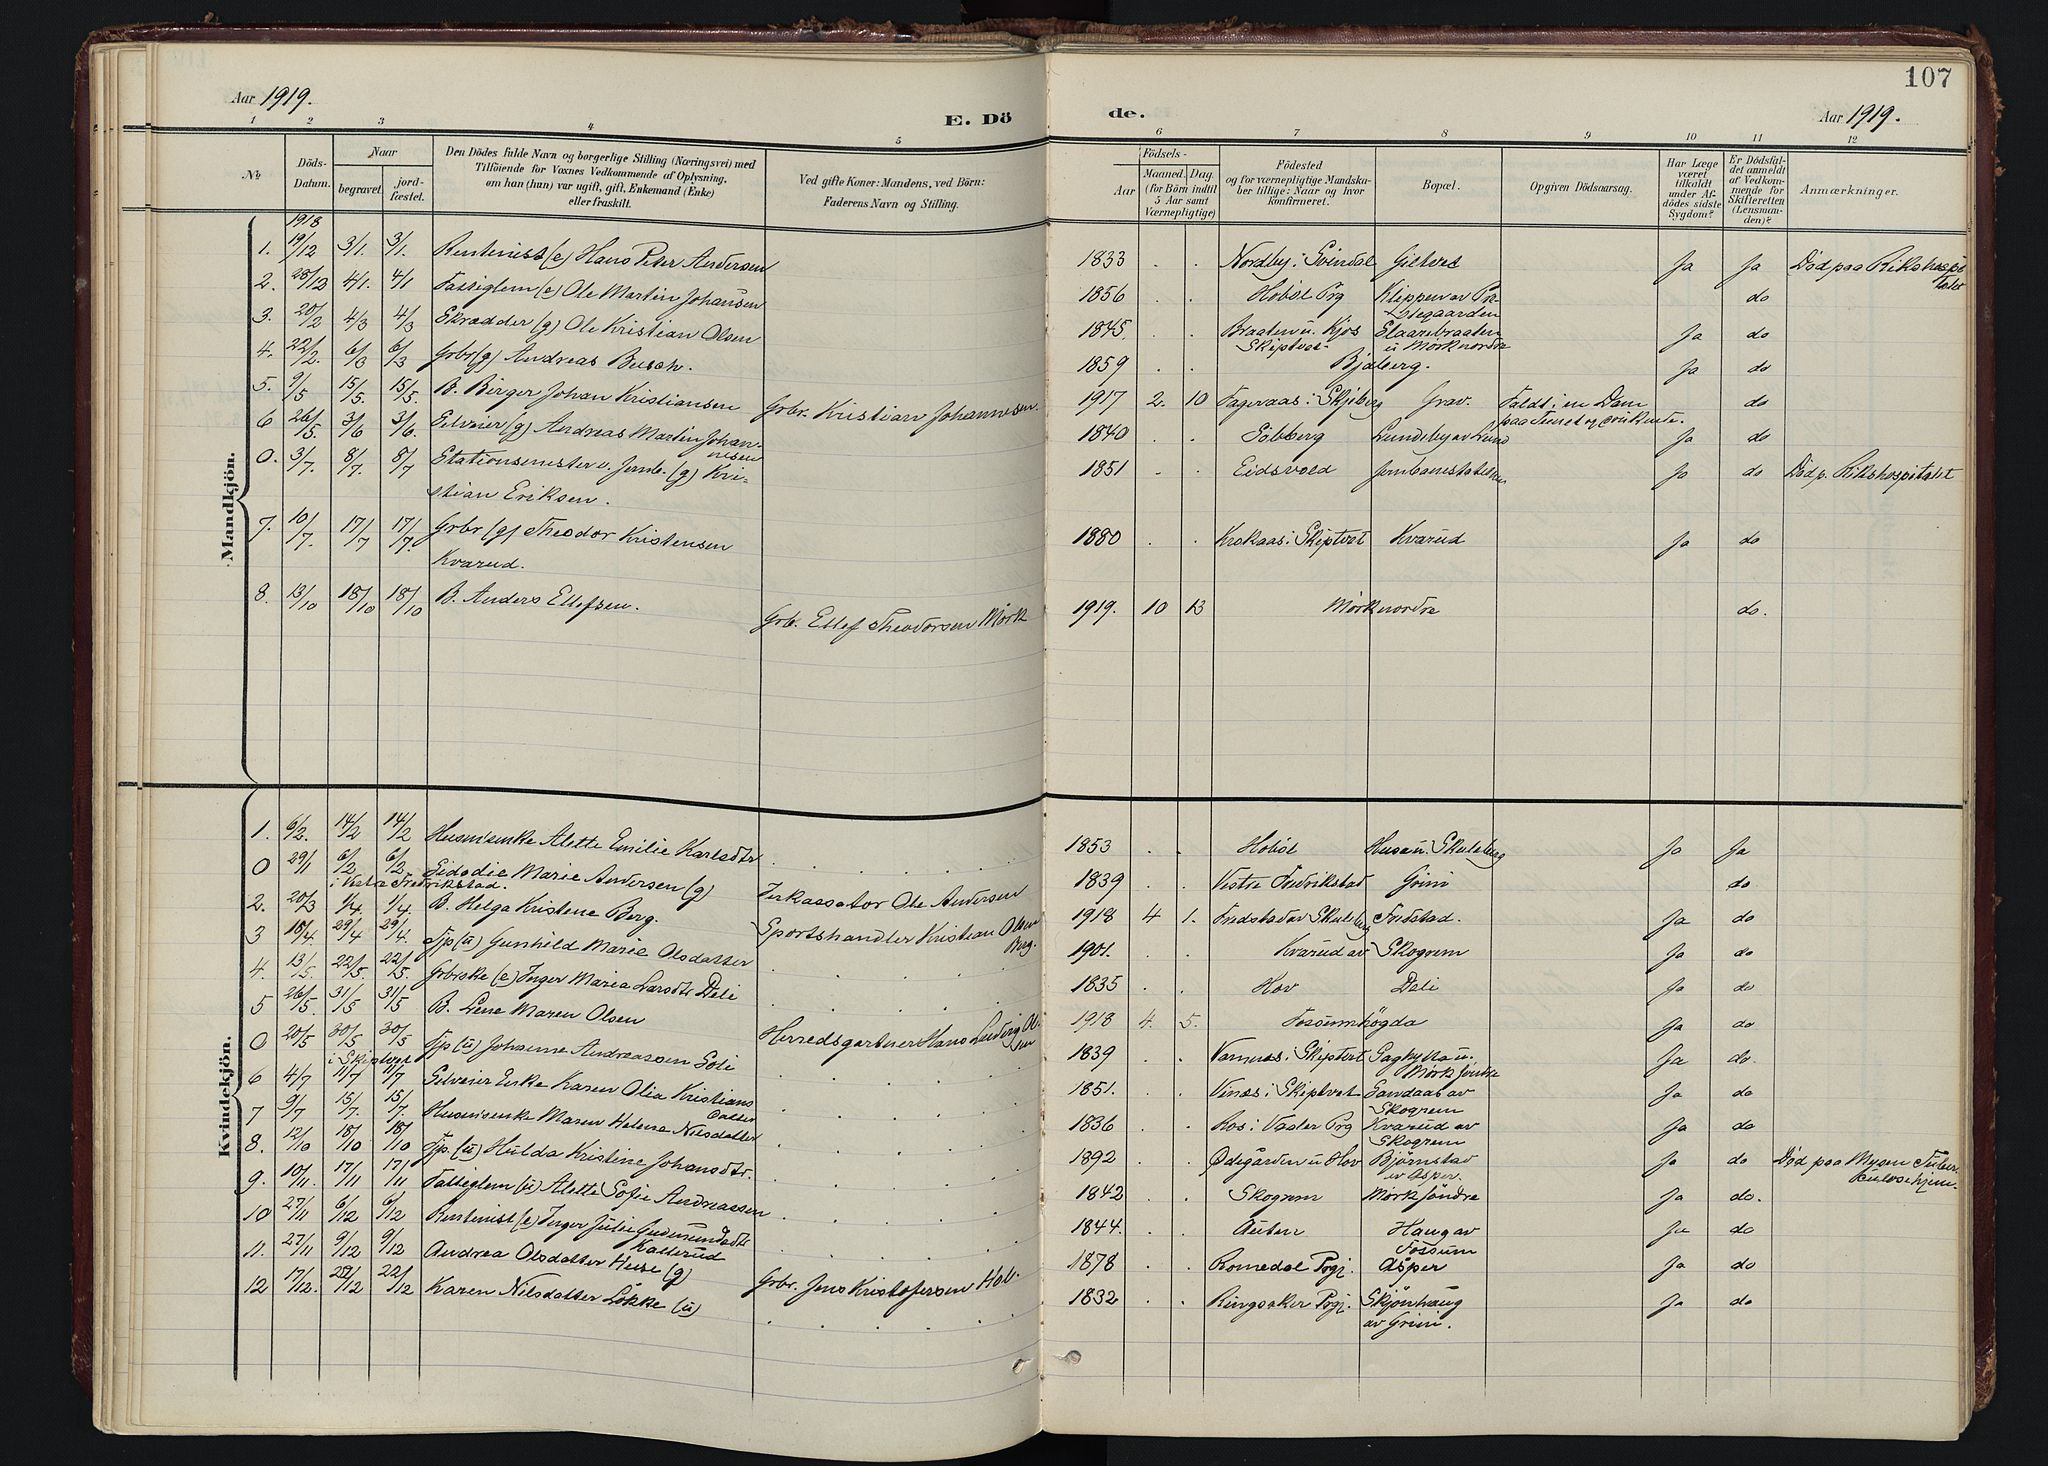 107
Aar 1919.
E. Dö
de.
Aar 1919.
1 2 3 4 5 6 7 8 9 10 11 12
No.
Döds-
Datum.
Naar
begravet.
jord-
fæstet.
Den Dödes fulde Navn og borgerlige Stilling (Næringsvei) med
Tilföiende for Voxnes Vedkommende af Oplysning,
om han (hun) var ugift, gift, Enkemand (Enke)
eller fraskilt.
Ved gifte Koner: Mandens, ved Börn:
Faderens Navn og Stilling.
Födsels-
Aar
Maaned. Dag.
(for Börn indtil
5 Aar samt
Værnepligtige)
Födested
og for værnepligtige Mandska-
ber tillige: Naar og hvor
konfirmeret.
Bopæl.
Opgiven Dödsaarsag.
Har Læge
været
tilkaldt
under Af-
dödes sidste
Sygdom?
Er Dödsfal-
det anmeldt
af Vedkom-
mende for
Skifteretten
(Lensman-
den)?
Anmærkninger.
Mandkjön.
1918
1. 19/12 3/1. 3/1. Rentenist (e) Hans Peter Andersen 1833 . . Nordby i Svindal Ja Ja Död paa Rikshospi-
talet
2. 4/1. 4/1 Fattiglem (e) Ole Martin Johansen 1856 . . Hobøl Prg Klippen av Pre-
stegaarden do
3. 20/2 4/3 4/3 Skrædder (g) Ole Kristian Olsen 1845. . . Braaten u. Kjos
Skiptvet Staaxebraaten
u Mørk nordre Ja do
4. 22/2. 6/3 6/3 Grbr (g) Andreas Busch. 1859 . . Bjaberg. Ja do
5. 9/5 15/5. 15/5. B. Birger Johan Kristiansen Grbr. Kristian Johannesen. 1917 2. 10 Fageraas i Skjeberg Grav. Faldt i en Dam
paa Tunet og druknte. do
6 26/5. 3/6 3/6. Selveier (g) Andreas Martin Johan-
nesen 1840 . . Solberg Lundeby av Lund Ja do
0. 3/7. 8/7. 8/7 Stationsmester v. Jernb. (g) Kri-
stian Eriksen. 1851 . . Eidsvold Jernbanestationen Ja do Död p. Rikshospitalet
7. 10/7. 17/7 17/7. Grbr (g) Theodor Kristensen
Kvarud. 1880 . . Krokaas i Skiptvet Kvarud Ja do
8. 13/10 18/10 18/10 B. Anders Ellefsen. Grb. Ellef Theodorsen Mørk 1919. 10 13 Mørk nordre do.
Kvindekjön.
1. 6/2. 14/2 14/2 Husmsenke Alette Emilie Karlsdtr 1853 . . Hobøl Husa u. Skuleberg Ja Ja
0 29/1 6/2 6/2
i Vestre Fredrikstad. Marie Andersen (g) Inkassator Ole Andersen 1839 . . Vestre Fredrikstad Grini do
2. 20/3 1/4 1/4. B. Helga Kristine Berg. Sportshandler Kristian Olsen
Berg. 1918 4 1. Fredstad av Skuleberg Fredstad. Ja do
3 18/4. 29/4 29/4. Tjp (u) Gunhild Marie Olsdatter 1901. . . Kvarud av Skogrem Ja do
4. 13/5. 22/5. 22/5. Grbrske (e) Inger Maria Larsdtr Deli 1835 . . Hov Deli Ja do
5 26/5. 31/5 31/5 B. Lene Maren Olsen Herredsgartner Hans Ludvig Ol-
sen 1918 4. 5. Fossumhøgda Ja do
0 20/5 30/5 30/5
i Skiptvet Tjp (u) Johanne Andreassen Soli 1839 . . Vamnes i Skiptvet Mørk søndre Ja do.
6 4/7 11/7 11/7 Selveier Enke Karen Olia Kristians
datter 1851. . . Vinæs i Skiptvet Sandaas av
Skogrem Ja do
7 9/7 15/7. 15/7. Husmsenke Maren Helene Nilsdatter 1836 . . Ros i Vaaler Prg Kvarud av
Skogrem Ja do
8. 12/10 18/10 18/10 Tjp. (u) Hulda Kristine Johansdtr. 1892 . . Ødegården u Hov Bjørnstad
av Asper. Ja do Död paa Mysen Tuber-
kulosehjem.
9. 10/11. 17/11 17/11 Fattiglem (u) Alette Sofie Andreassen 1842 . . Skogrem Mørk søndre Ja do.
10 27/11 6/12 6/12 Rentenist (e) Inger Julie Gudmundsdtr
Kallerud 1844. . . Auten Haug av
Fossum Ja do
11. 27/11 9/12 9/12 Andrea Olsdatter Huse (g) Grbr. Jens Kristofersen Hol. 1878 . . Romedal Prgj. Asper Ja do
12 17/12. 22/12 22/12 Karen Nilsdatter Løkke (u) 1832 . . Ringsaker Prgj. Skjønhaug
av Grini. Ja do